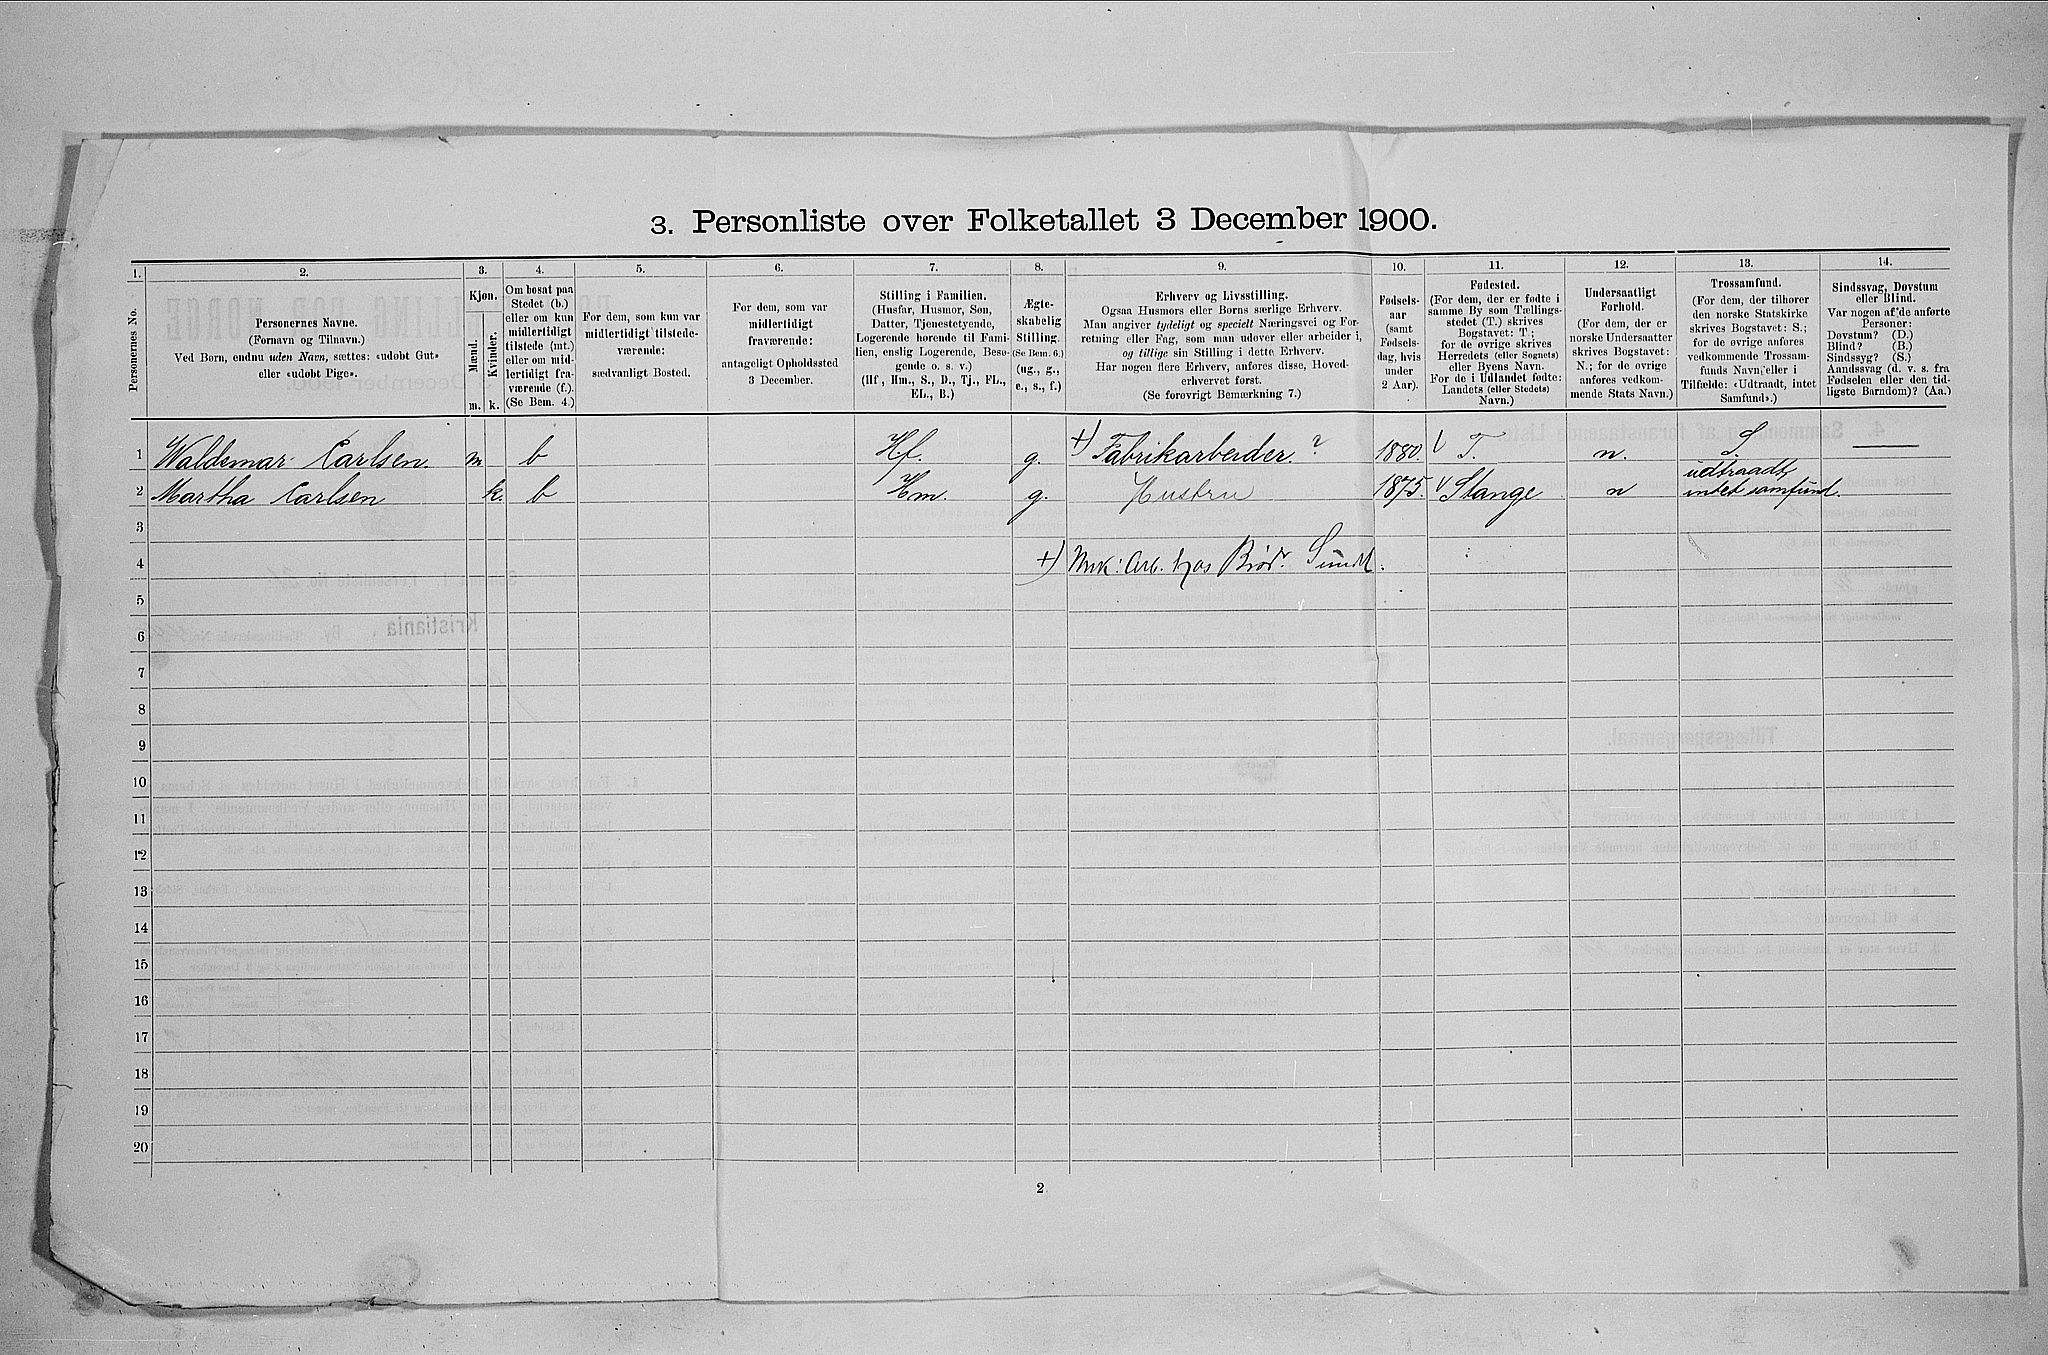 3. Personliste over Folketallet 3 December 1900.
1. 2. 3. 4. 5. 6. 7. 8. 9. 10. 11. 12. 13. 14.
Personernes No.
Personernes Navne.
(Fornavn og Tilnavn.)
Ved Børn, endnu uden Navn, sættes: «udøbt Gut»
eller «udøbt Pige».
Kjøn.
Mænd.
Kvinder.
m. k.
Om bosat paa
Stedet (b.)
eller om kun
midlertidigt
tilstede (mt.)
eller om mid-
lertidigt fra-
værende (f.).
(Se Bem. 4.)
For dem, som kun var
midlertidigt tilstede-
værende:
sædvanligt Bosted.
For dem, som var
midlertidigt
fraværende:
antageligt Opholdssted
3 December.
Stilling i Familien.
(Husfar, Husmor, Søn,
Datter, Tjenestetyende,
Logerende hørende til Fami-
lien, enslig Logerende, Besø-
gende o. s. v.)
(Hf., Hm., S., D., Tj., FL.,
EL., B.)
Ægte-
skabelig
Stilling.
(Se Bem. 6.)
(ug., g.,
e., s., f.)
Erhverv og Livsstilling.
Ogsaa Husmors eller Børns særlige Erhverv.
Man angiver tydeligt og specielt Næringsvei og For-
retning eller Fag, som man udøver eller arbeider i,
og tillige sin Stilling i dette Erhverv.
Har nogen flere Erhverv, anføres disse, Hoved-
erhvervet først.
(Se forøvrigt Bemærkning 7.)
Fødsels-
aar
(samt
Fødsels-
dag, hvis
under
2 Aar).
Fødested.
(For dem, der er fødte i
samme By som Tællings-
stedet (T.) skrives
Bogstavet: T.;
for de øvrige skrives
Herredets (eller Sognets)
eller Byens Navn.
For de i Udlandet fødte:
Landets (eller Stedets)
Navn.)
Undersaatligt
Forhold.
(For dem, der er
norske Undersaatter
skrives Bogstavet:
N.; for de øvrige
anføres vedkom-
mende Stats Navn.)
Trossamfund.
(For dem, der tilhører
den norske Statskirke
skrives Bogstavet: S.;
for de øvrige anføres
vedkommende Trossam-
funds Navn, eller i
Tilfælde: «Udtraadt, intet
Samfund».)
Sindssvag, Døvstum
eller Blind.
Var nogen af de anførte
Personer:
Døvstum? (D.)
Blind? (B.)
Sindssyg? (S.)
Aandssvag (d. v. s. fra
Fødselen eller den tid-
ligste Barndom)? (Aa.)
1 Waldemar Carlsen. m b Hf. g. +) Fabrikarbeider. ? 1880. T. n. S.
2 Martha Carlsen k. b Hm. g. Hustru 1875. Stange n udtraadt,
intet samfund.
3
4 +) Mek: Arb. hos Brød. Sundt.
5
6
7
8
9
10
11
12
13
14
15
16
17
18
19
20
2